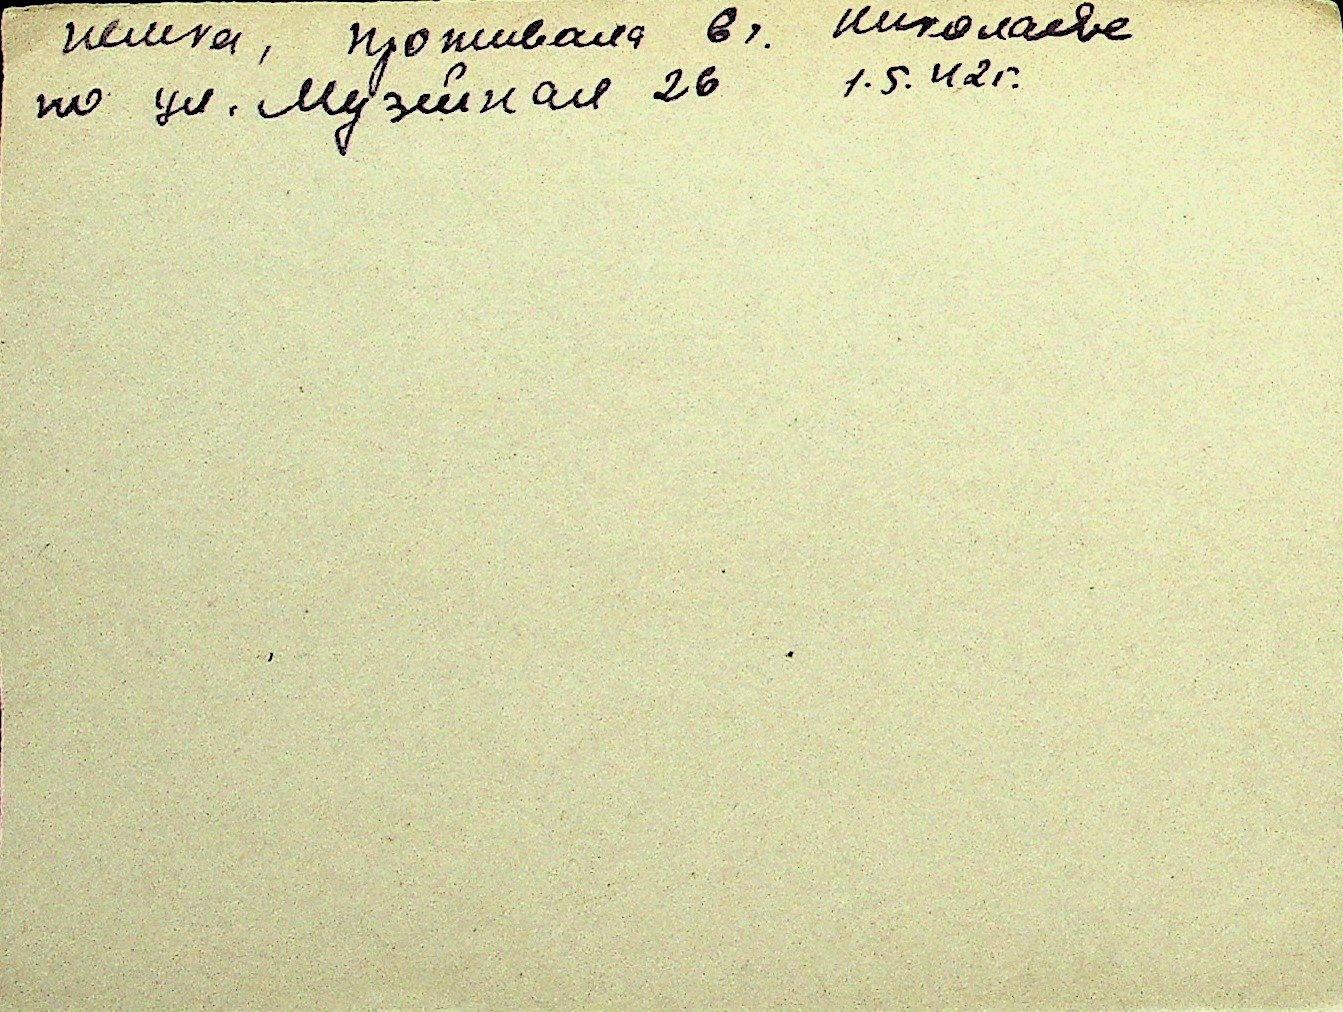 немка, проживала в г. Николаеве
по ул. Музейная 26 1.5.42г.